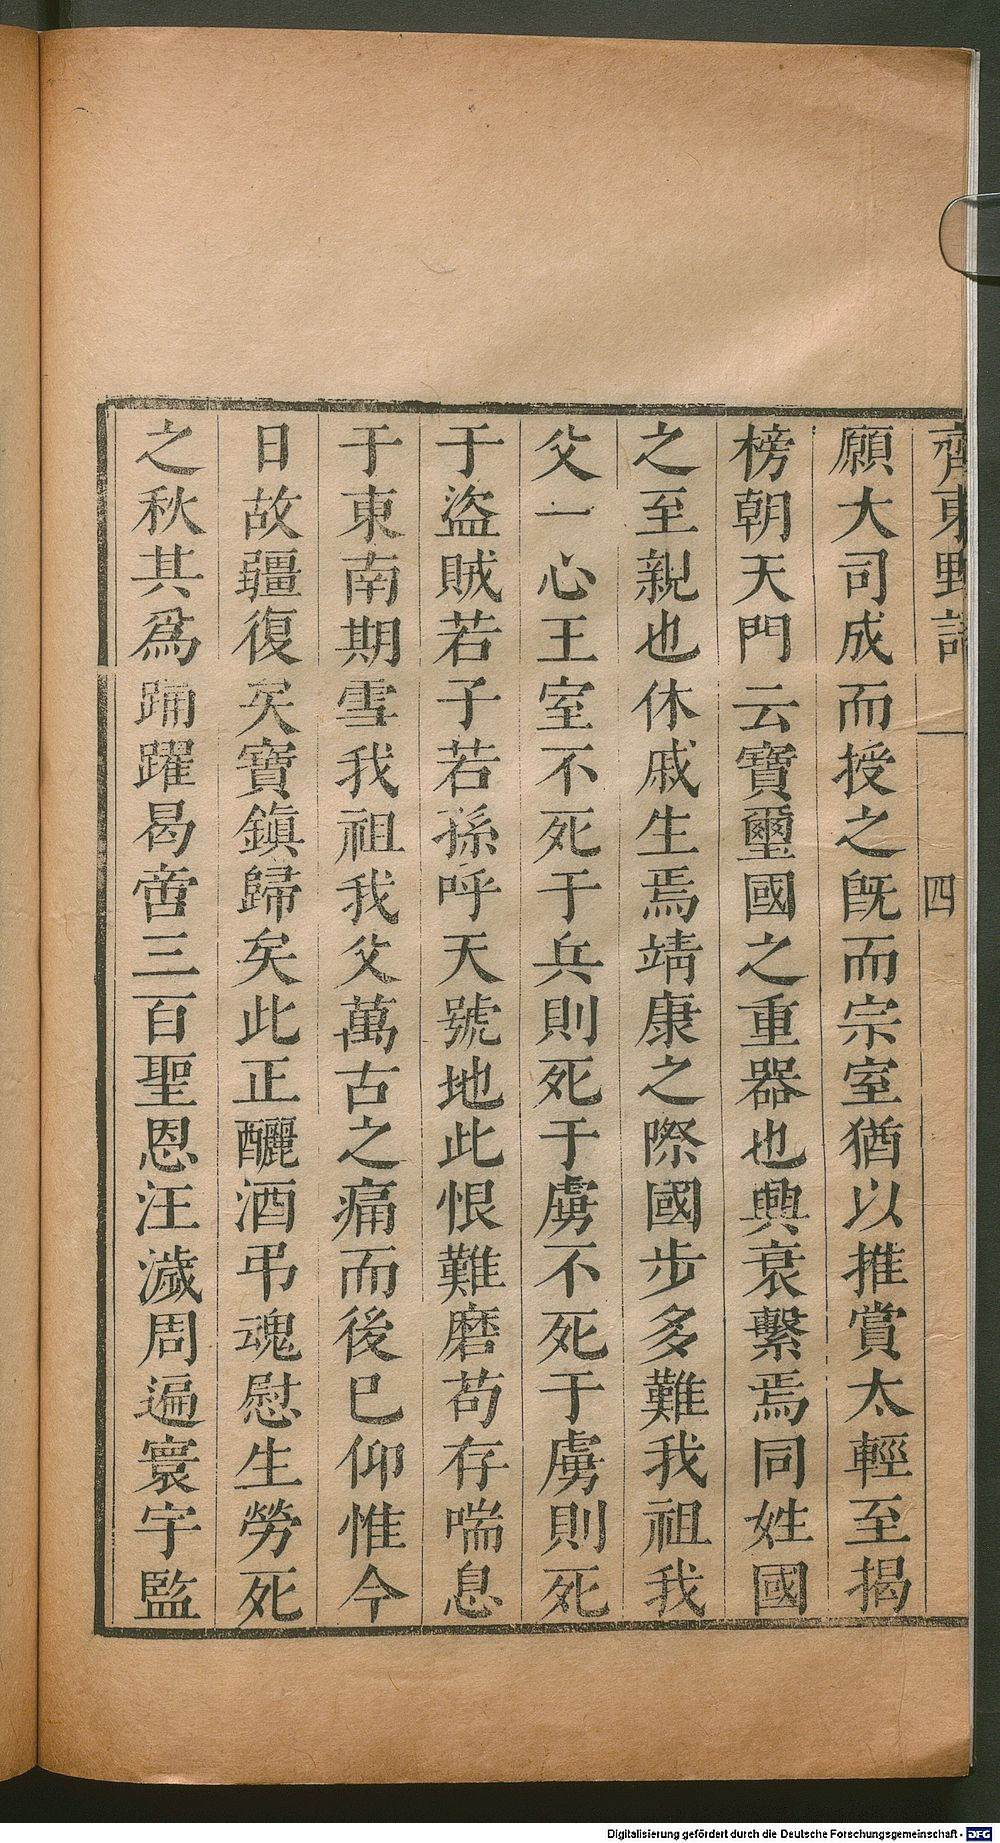 齊東野語
四
願大司成而授之旣而宗室猶以推賞太輕至揭
榜朝天門云寶璽國之重器也興衰繫焉同姓國
之至親也休戚生焉靖康之際國步多難我祖我
父一心王室不死于兵則死于虜不死于虜則死
于盜賊若子若孫呼天號地此恨難磨苟存喘息
于東南期雪我祖我父萬古之痛而後已仰惟今
日故疆復矣寶鎭歸矣此正釃酒弔魂慰生勞死
之秋其爲踊躍曷啻三百聖恩汪濊周遍寰宇監
Digitalisierung gefördert durch die Deutsche Forschungsgemeinschaft - DFG